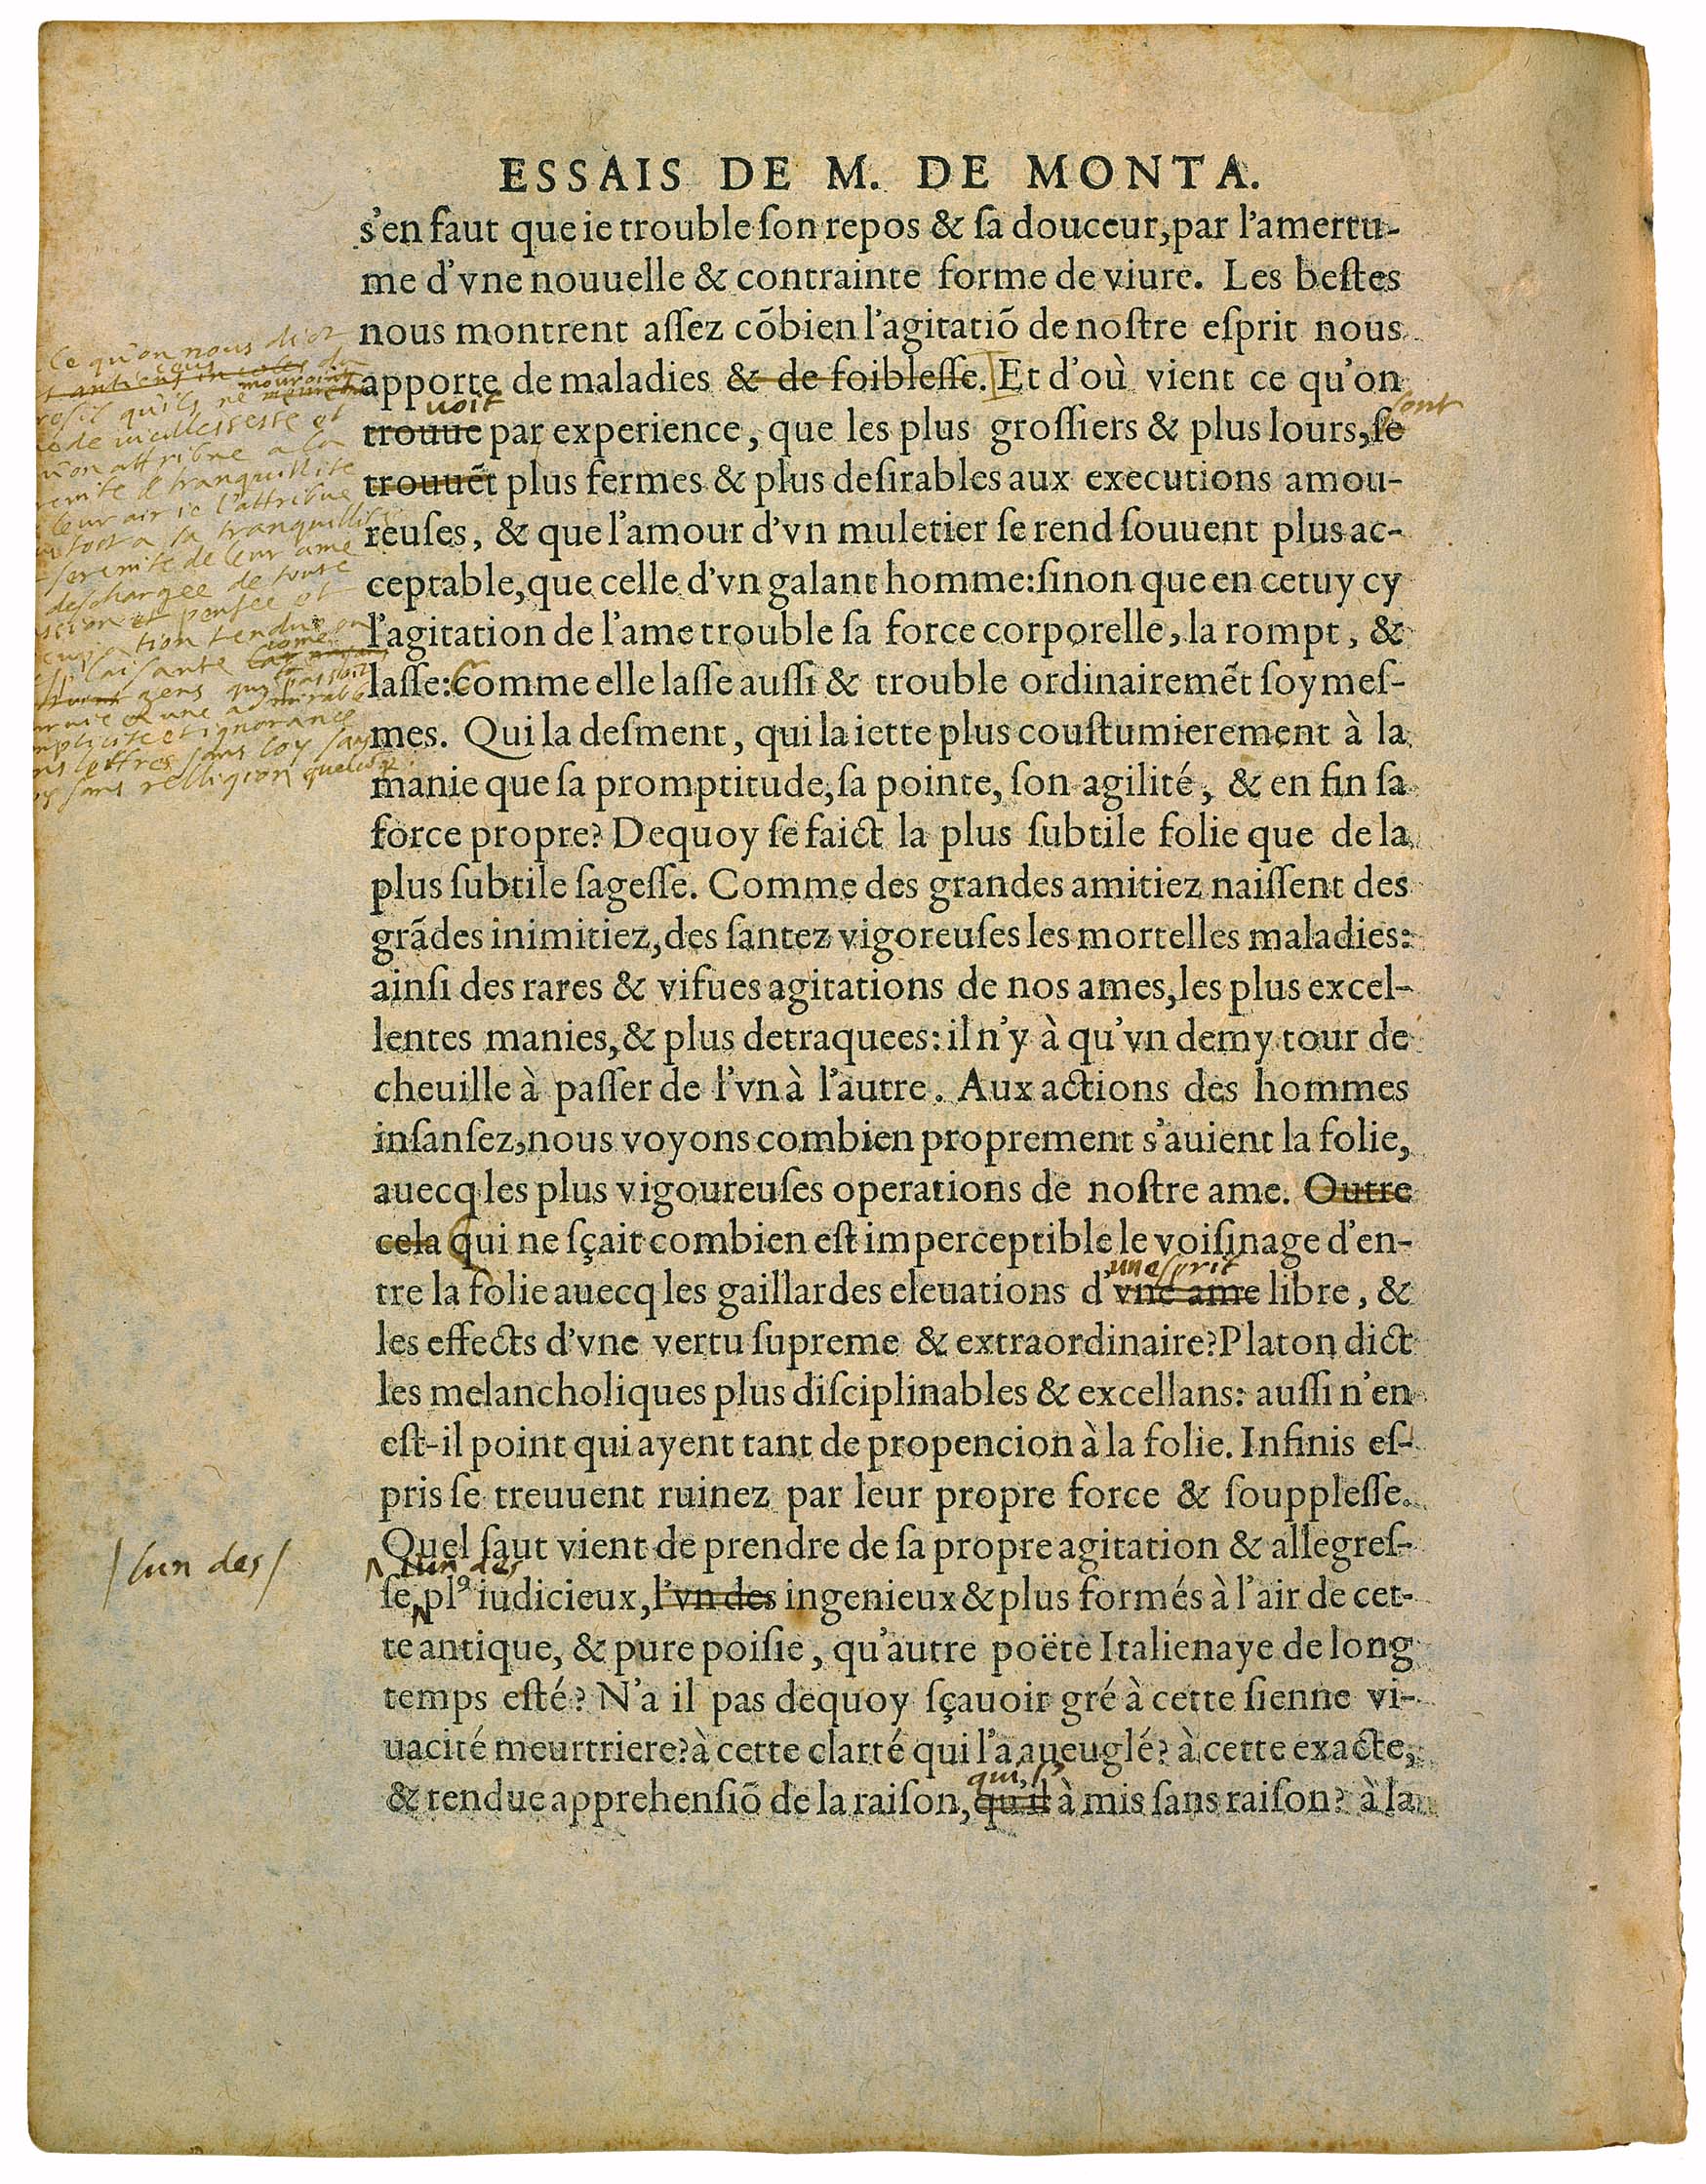 ESSAIS DE M. DE MONTA.
s'en faut que ie trouble ſon repos & ſa douceur, par l'amertu-
me d'vne nouuelle & contrainte forme de viure. Les beſtes
nous montrent aſſez cõbien l'agitatiõ de noſtre eſprit nous
apporte de maladies & de foibleſſe. Et d'où vient ce qu'on
voit
trouue par experience, que les plus groſſiers & plus lours, ſe
sont
trouuẽt plus fermes & plus deſirables aux executions amou-
reuſes, & que l'amour d'vn muletier ſe rend ſouuent plus ac-
ceptable, que celle d'vn galant homme: ſinon que en cetuy cy
l'agitation de l'ame trouble ſa force corporelle, la rompt, &
laſſe: comme elle laſſe auſſi & trouble ordinairemẽt ſoymeſ-
mes. Qui la deſment, qui la iette plus couſtumierement à la
manie que ſa promptitude, ſa pointe, ſon agilité, & en fin ſa
force propre? Dequoy ſe faict la plus ſubtile folie que de la
plus ſubtile ſageſſe. Comme des grandes amitiez naiſſent des
grãdes inimitiez, des ſantez vigoreuſes les mortelles maladies:
ainſi des rares & vifues agitations de nos ames, les plus excel-
lentes manies, & plus detraquees: il n'y à qu'vn demy tour de
cheuille à paſſer de l'vn à l'autre. Aux actions des hommes
inſanſez, nous voyons combien proprement s'auient la folie,
auecq les plus vigoureuſes operations de noſtre ame. Outre
cela qui ne ſçait combien eſt imperceptible le voiſinage d'en-
un esprit
tre la folie auecq les gaillardes eleuations d'vne ame libre, &
les effects d'vne vertu ſupreme & extraordinaire? Platon dict
les melancholiques plus diſciplinables & excellans: auſſi n'en
eſt-il point qui ayent tant de propencion à la folie. Infinis eſ-
pris ſe treuuent ruinez par leur propre force & ſouppleſſe.
Quel ſaut vient de prendre de ſa propre agitation & allegreſ-
lun des
ſe plꝰ iudicieux, l'vn des ingenieux & plus formés à l'air de cet-
te antique, & pure poiſie, qu'autre poëte Italien aye de long
temps eſté? N'a il pas dequoy ſçauoir gré à cette ſienne vi-
uacité meurtriere? à cette clarté qui l'a aueuglé? à cette exacte,
qui l'
& tendue apprehenſiõ de la raiſon, qu'il à mis ſans raiſon? à la
Ce qu'on nous dict
qu'ils ne mouroint
de vieillesse et
on attribue a la
tranquillite
leur air ie l'attribue
tost a la tranquillite
serenite de leur ame
deschargee de toute
et pensee et
tion tendue ou
plaisante come
gens qui passoint
une admirable
simplicite et ignorance
lettres sans loy sans
sans relligion quelconque
/ lun des /